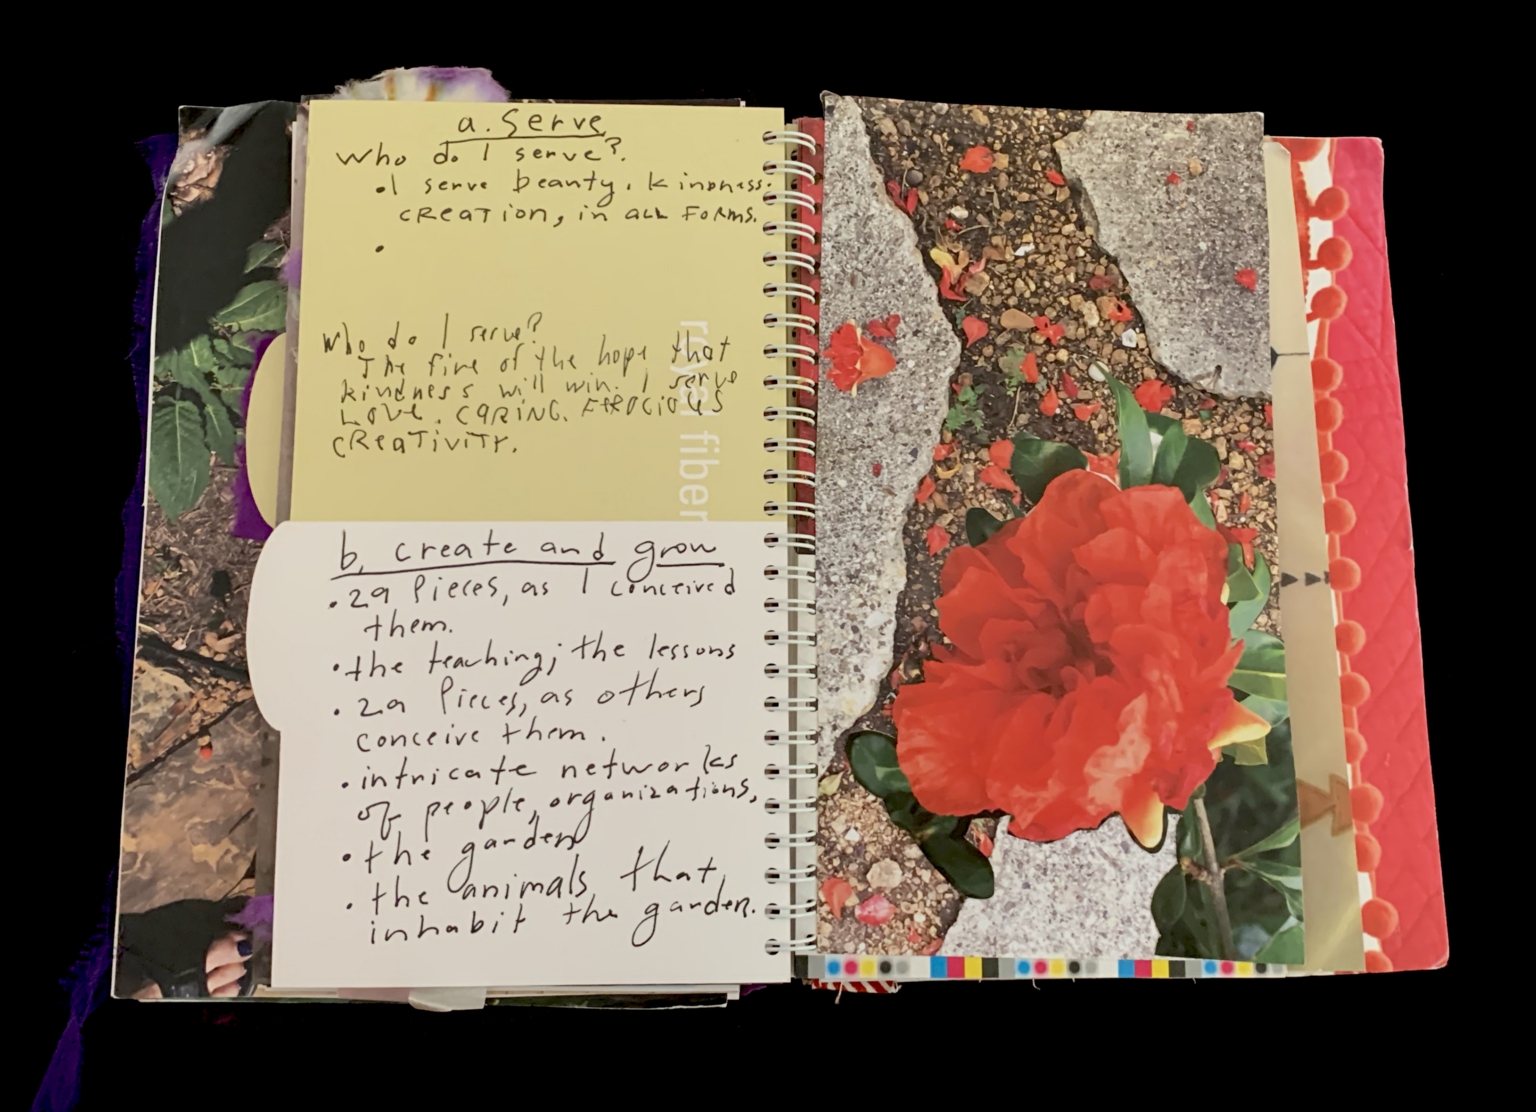 a. Serve
Who do I serve?
• I serve beauty, kindness.
creation, in all forms.
•
Who do I serve?
The fire of the hope that
kindness will win. I serve
Love. Caring. Ferocious
creativity.
royal fiber
b. create and grow
• 29 Pieces, as I conceived
them.
• the teaching; the lessons
• 29 Pieces, as others
conceive them.
• intricate networks
of people, organizations,
• the garden
• the animals that
inhabit the garden.